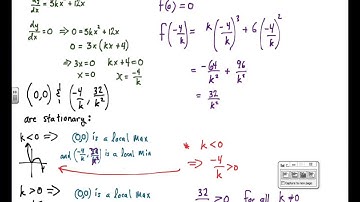 dy/dx = 3kx² + 12x
dy/dx = 0 => 0 = 3kx² + 12x
0 = 3x(kx + 4)
=> 3x = 0   kx + 4 = 0
x = 0   x = -4/k
(0,0) & (-4/k, 32/k²)
are stationary:
k < 0 => (0,0) is a local max
and (-4/k, 32/k²) is a local min
k > 0 => (0,0) is a local max
f(0) = 0
f(-4/k) = k(-4/k)³ + 6(-4/k)²
= -64/k² + 96/k²
= 32/k²
* k < 0
=> -4/k > 0
32 > 0 for all k ≠ 0